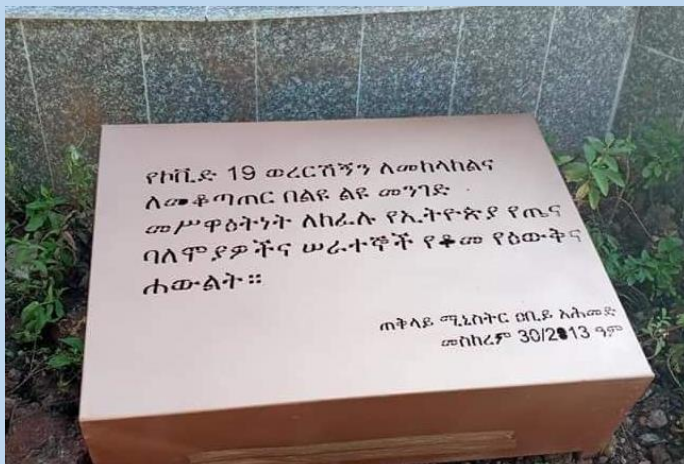 የኮቪድ 19 ወረርሽኝን ለመከላከልና
ለመቆጣጠር በልዩ ልዩ መንገድ
መሥዋዕትነት ለከፈሉ የኢትዮጵያ የጤና
ባለሞያዎችና ሠራተኞች የቆመ የዕውቅና
ሐውልት።
ጠቅላይ ሚኒስትር ዐቢይ አሕመድ
መስከረም 30/2013 ዓም